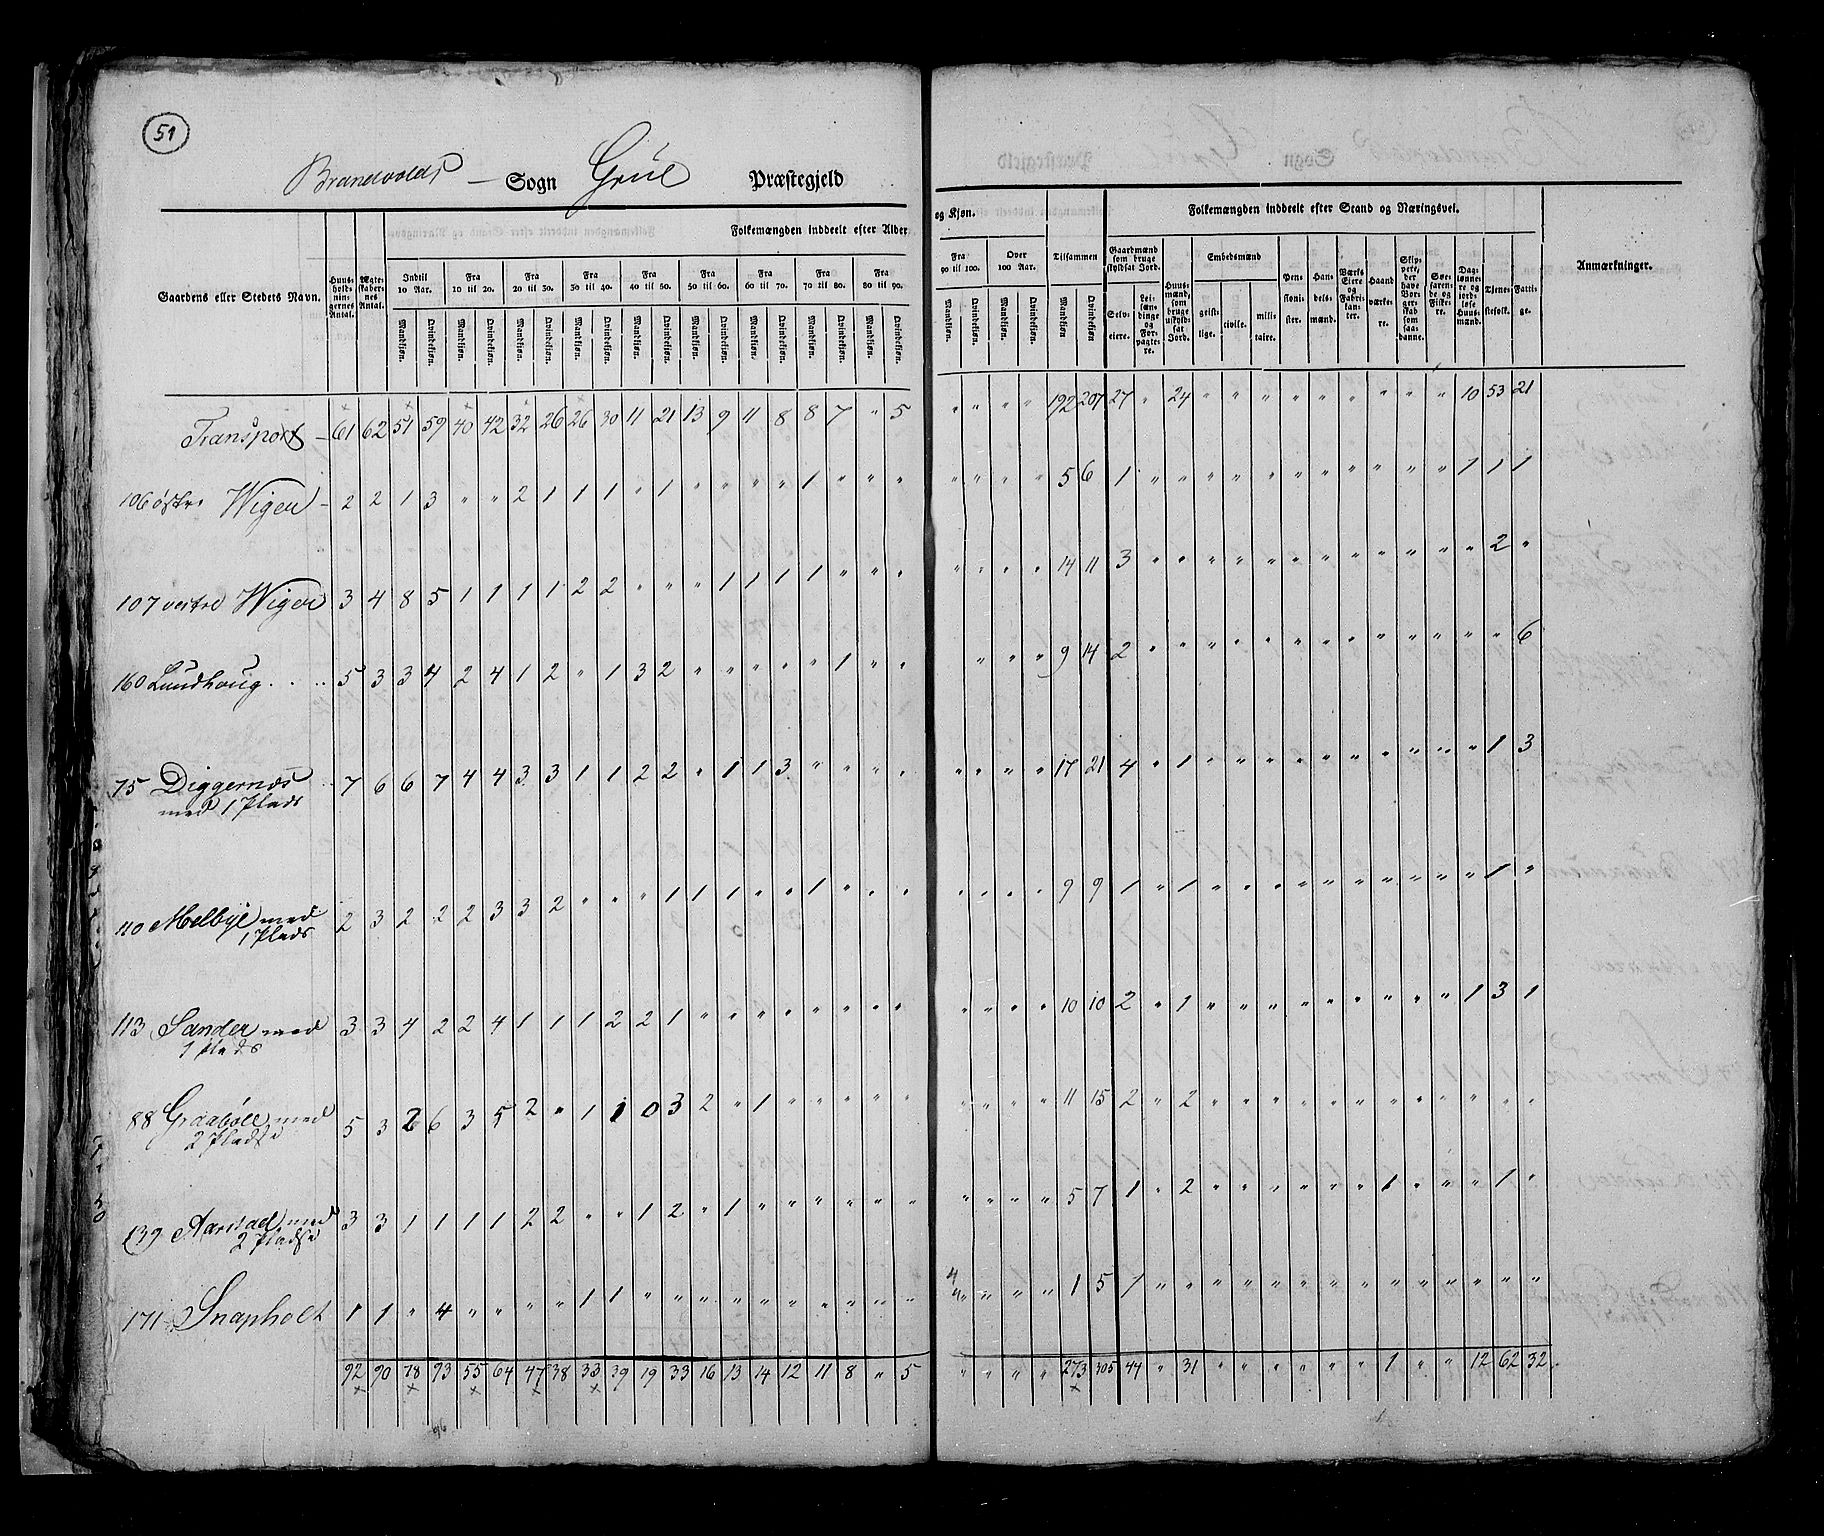 51
Brandvolds — Sogn Grüe Præstegjeld
Gaardens eller Stedets Navn.
Huus-holdningernes Antal.
Ægteskabernes Antal.
Folkemængden inddeelt efter Alder og Kjøn.
Folkemængden inddeelt efter Stand og Næringsvei.
Anmærkninger.
Indtil 10 Aar. Fra 10 til 20. Fra 20 til 30. Fra 30 til 40. Fra 40 til 50. Fra 50 til 60. Fra 60 til 70. Fra 70 til 80. Fra 80 til 90. Fra 90 til 100. Over 100 Aar. Tilsammen
Gaardmænd som bruge skyldsat Jord. Huusmænd, som bruge uskyldsat Jord. Embedsmænd Pensionister. Handelsmænd. Værks Eiere og Fabrikanter. Haandværkere. Skippere, der have Borgerskab som saadanne. Søefarende og Fiskere. Daglønnere og jordløse Huusmænd. Tjenestefolk. Fattige.
Mandkjøn. Qvindekjøn. Mandkjøn. Qvindekjøn. Mandkjøn. Qvindekjøn. Mandkjøn. Qvindekjøn. Mandkjøn. Qvindekjøn. Mandkjøn. Qvindekjøn. Mandkjøn. Qvindekjøn. Mandkjøn. Qvindekjøn. Mandkjøn. Qvindekjøn. Mandkjøn. Qvindekjøn. Mandkjøn. Qvindekjøn. Mandkjøn Qvindekjøn Selveiere. Leilændinge og Forpagtere. geistlige. civile. militaire.
Transport — 61 62 51 59 40 42 32 26 26 30 11 21 13 9 11 8 8 7 " 5 " " " " 192 207 27 " 24 " " " " " " " " " 10 53 21
106 østre Wigen — 2 2 1 3 " " 2 1 1 1 " 1 " " " " 1 " " " " " " " 5 6 1 " " " " " " " " " " " 1 1 1
107 vestre Wigen 3 4 8 5 1 1 1 1 2 2 " " " 1 1 1 1 " " " " " " " 14 11 3 " " " " " " " " " " " " 2 "
160 Lundhoug . . . . 5 3 3 4 2 4 1 2 " 1 3 2 " " " " " 1 " " " " " 9 14 2 " " " " " " " " " " " " " 6
75 Diggernæs
med 1 Plads . . 7 6 6 7 4 4 3 3 1 1 2 2 " 1 1 3 " " " " " " " " 17 21 4 " 1 " " " " " " " " " " 1 3
110 Melbye med
1 Plads 2 3 2 2 2 3 3 2 " " " 1 1 1 " " 1 " " " " " " " 9 9 1 " 1 " " " " " " " " " " 1 "
113 Sander med
1 Plads 3 3 4 2 2 4 1 1 1 2 2 1 " " " " " " " " " " " " 10 10 2 " 1 " " " " " " " " " 1 3 1
88 Graabøll med
2 Pladse 5 3 2 6 3 5 2 " 1 1 0 3 2 " 1 " " " " " " " " " 11 15 2 " 2 " " " " " " " " " " " "
139 Aarstad med
2 Pladse 3 3 1 1 1 1 2 2 " " 1 2 " 1 " " " " " " " " " " 5 7 1 " 2 " " " " " " 1 " " " 1 "
171 Snapholt 1 1 " 4 " " " " 1 1 " " " " " " " " " " " " " " 1 5 1 " " " " " " " " " " " " " "
92 90 78 93 55 64 47 38 33 39 19 33 16 13 14 12 11 8 " 5 " " " " 273 305 44 " 31 " " " " " " 1 " " 12 62 32